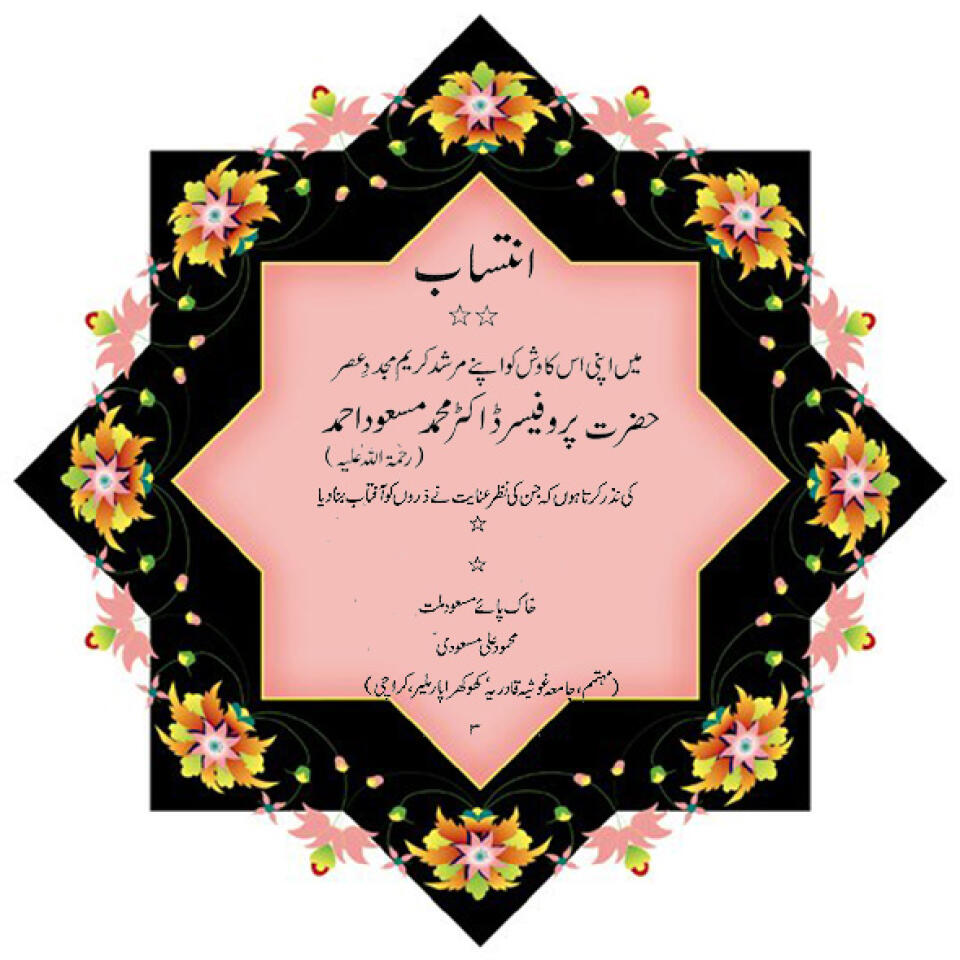 انتساب
☆☆
میں اپنی اس کاوش کو اپنے مرشد کریم مجددِ عصر
حضرت پروفیسر ڈاکٹر محمد مسعود احمد
(رحمۃ اللہ علیہ)
کی نذر کرتا ہوں کہ جن کی نظر عنایت نے ذروں کو آفتاب بنا دیا
☆
☆
خاک پائے مسعود ملت
محمود علی مسعودی
(مہتمم، جامعہ غوثیہ قادریہ، کھوکھرا پار ملیر، کراچی)
۳